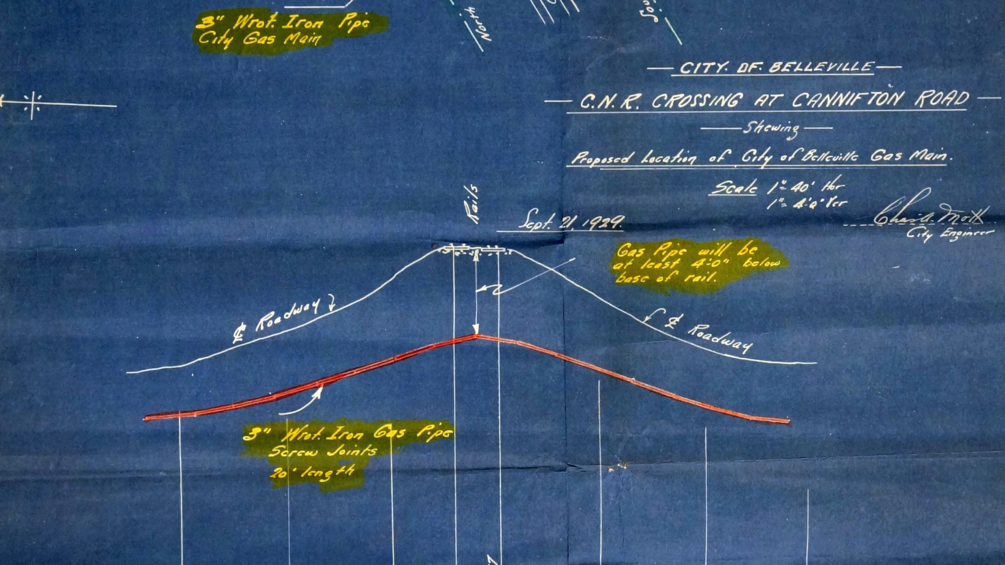 3" Wrot. Iron Pipe
City Gas Main
North
CITY. OF. BELLEVILLE
C.N.R. CROSSING AT CANNIFTON ROAD
Shewing
Proposed Location of City of Belleville Gas Main.
Scale 1"= 40' Hor
1"= 4'0" Ver
City Engineer
Rails
Sept. 21 1929.
Gas Pipe will be
at least 4'-0" below
base of rail.
℄ Roadway
℄ Roadway
3" Wrot. Iron Gas Pipe
Screw Joints
20' length